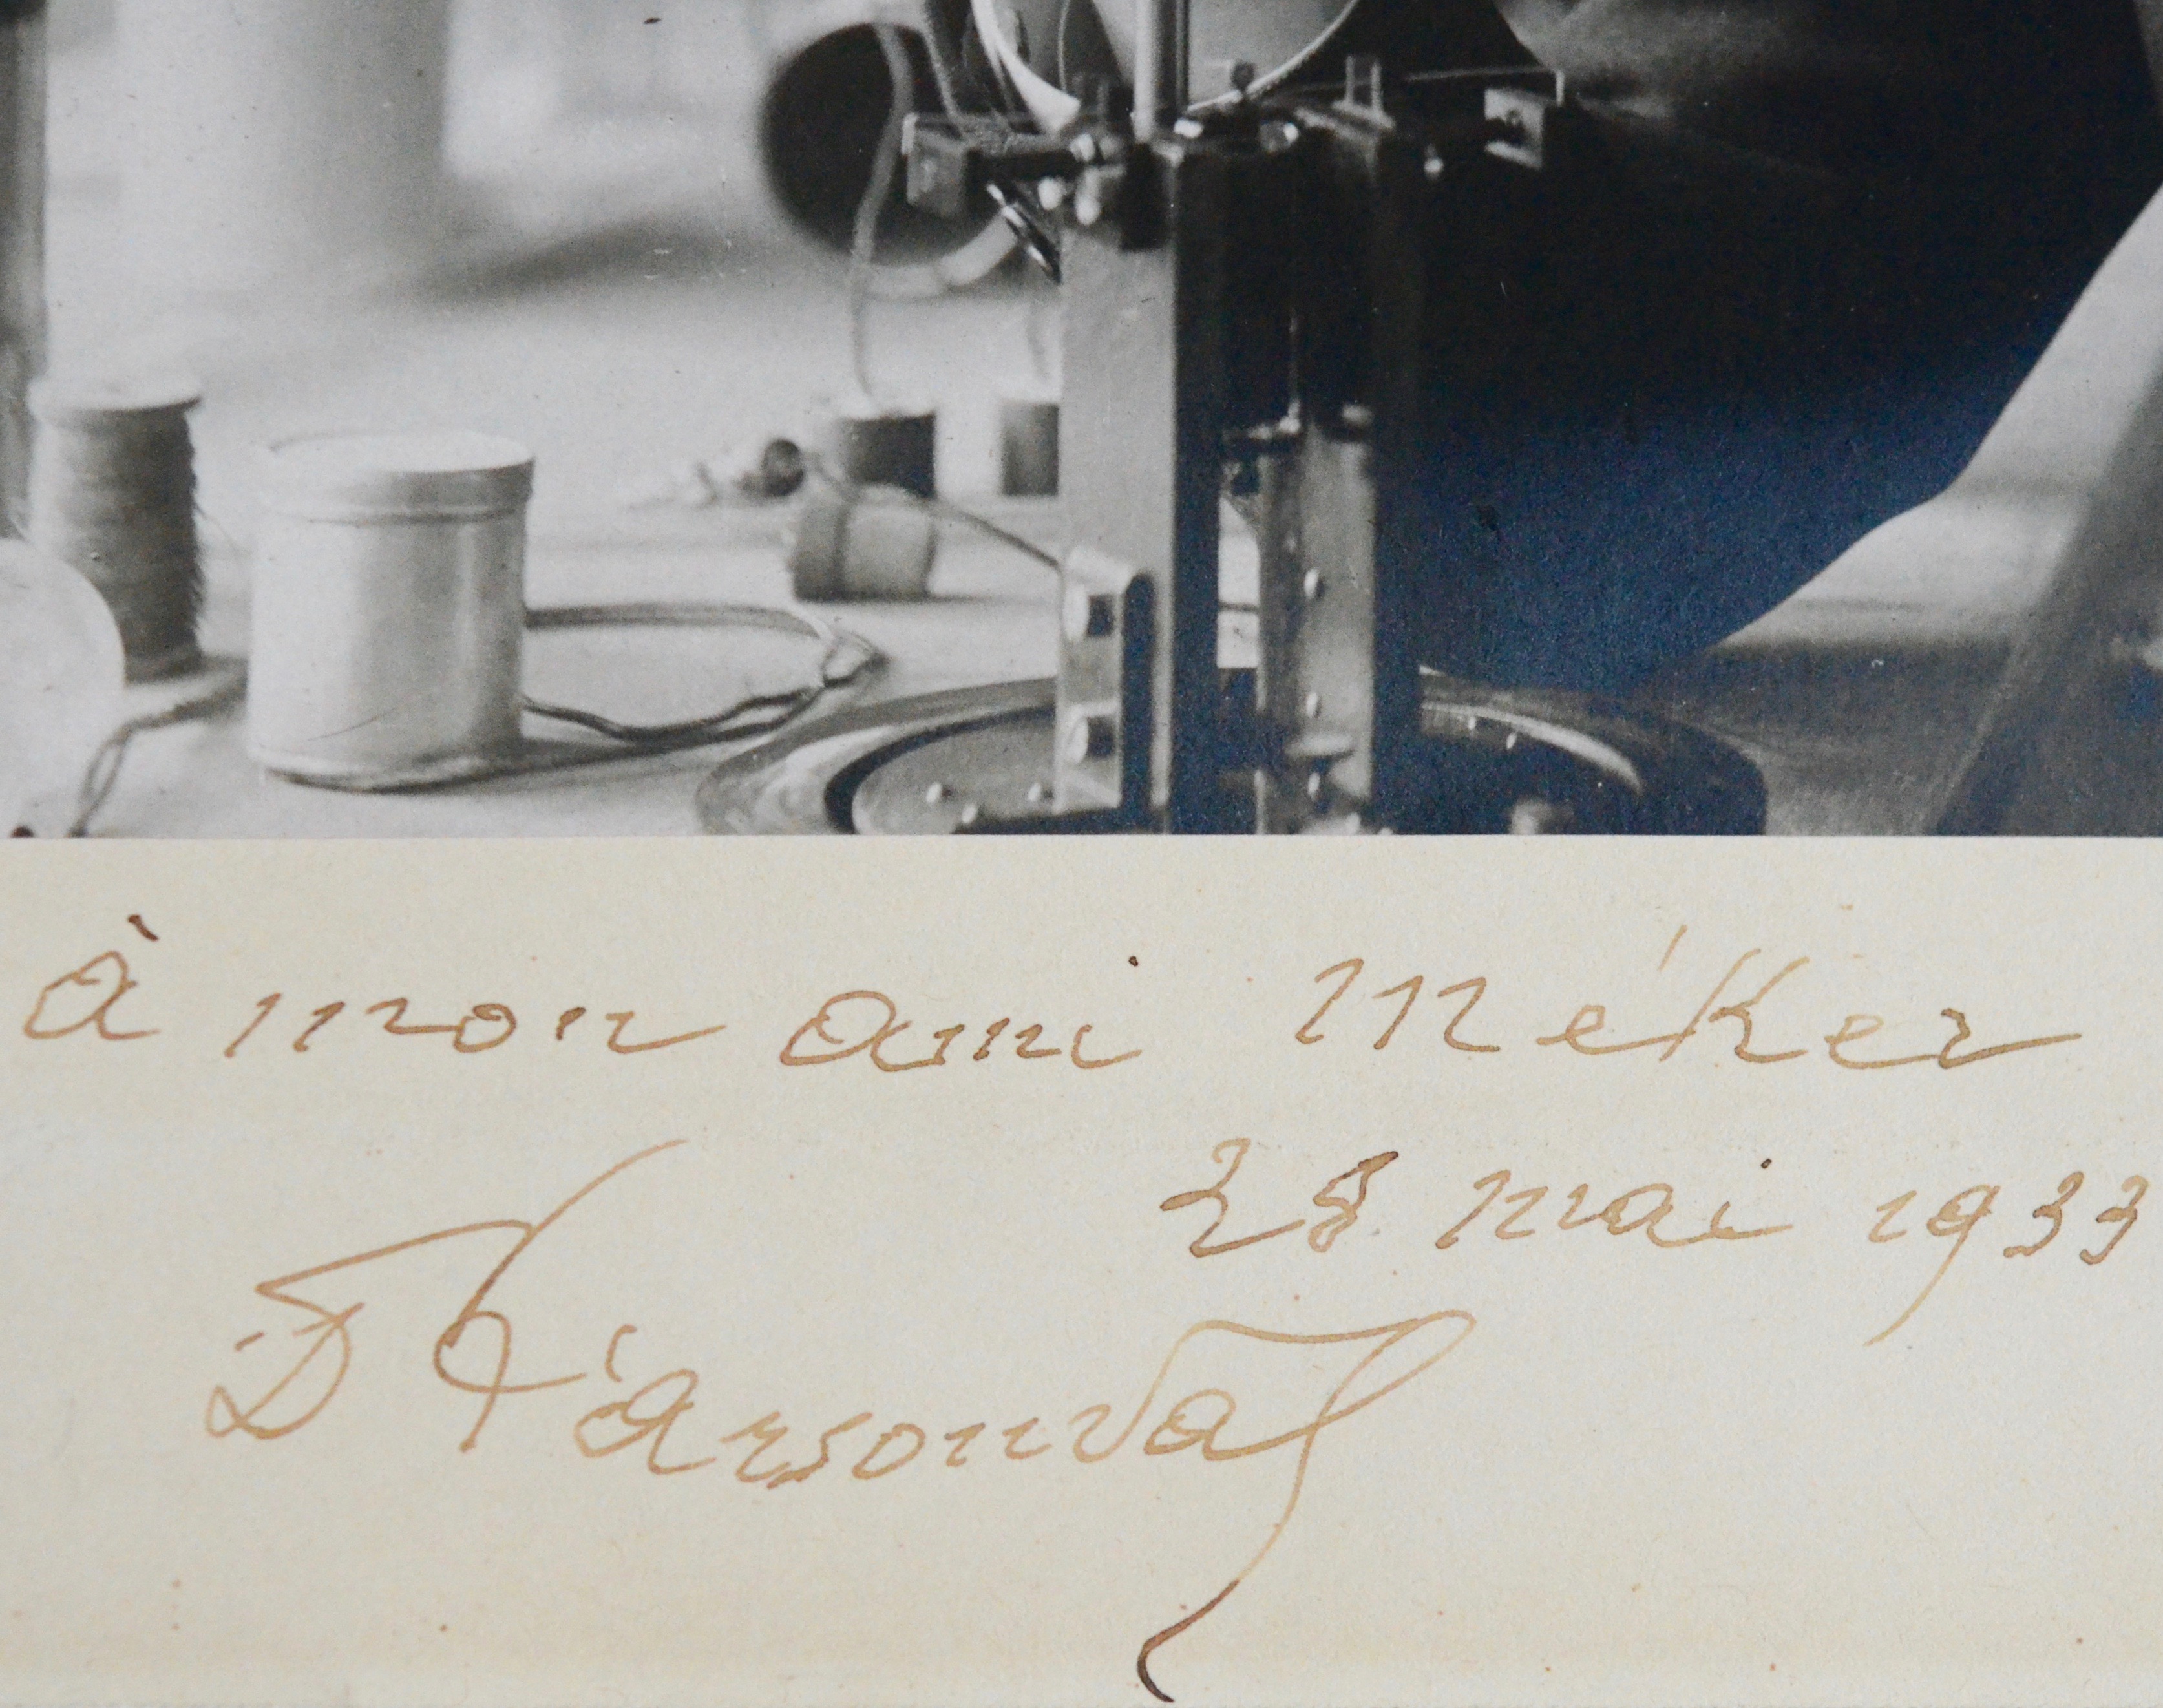 à mon ami Méker
28 mai 1933
D'Arsonval